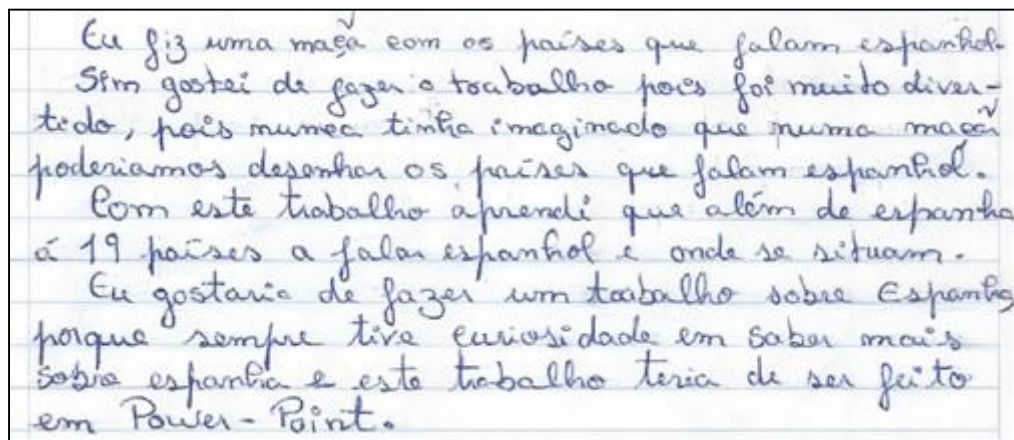 Eu fiz uma maçã com os países que falam espanhol.
Sim gostei de fazer o trabalho pois foi muito diver-
tido, pois nunca tinha imaginado que numa maçã
poderiamos desenhar os países que falam espanhol.
Com este trabalho aprendi que além de espanha
á 19 países a falar espanhol e onde se situam.
Eu gostaria de fazer um trabalho sobre Espanha,
porque sempre tive curiosidade em saber mais
sobre espanha e este trabalho teria de ser feito
em Power-Point.